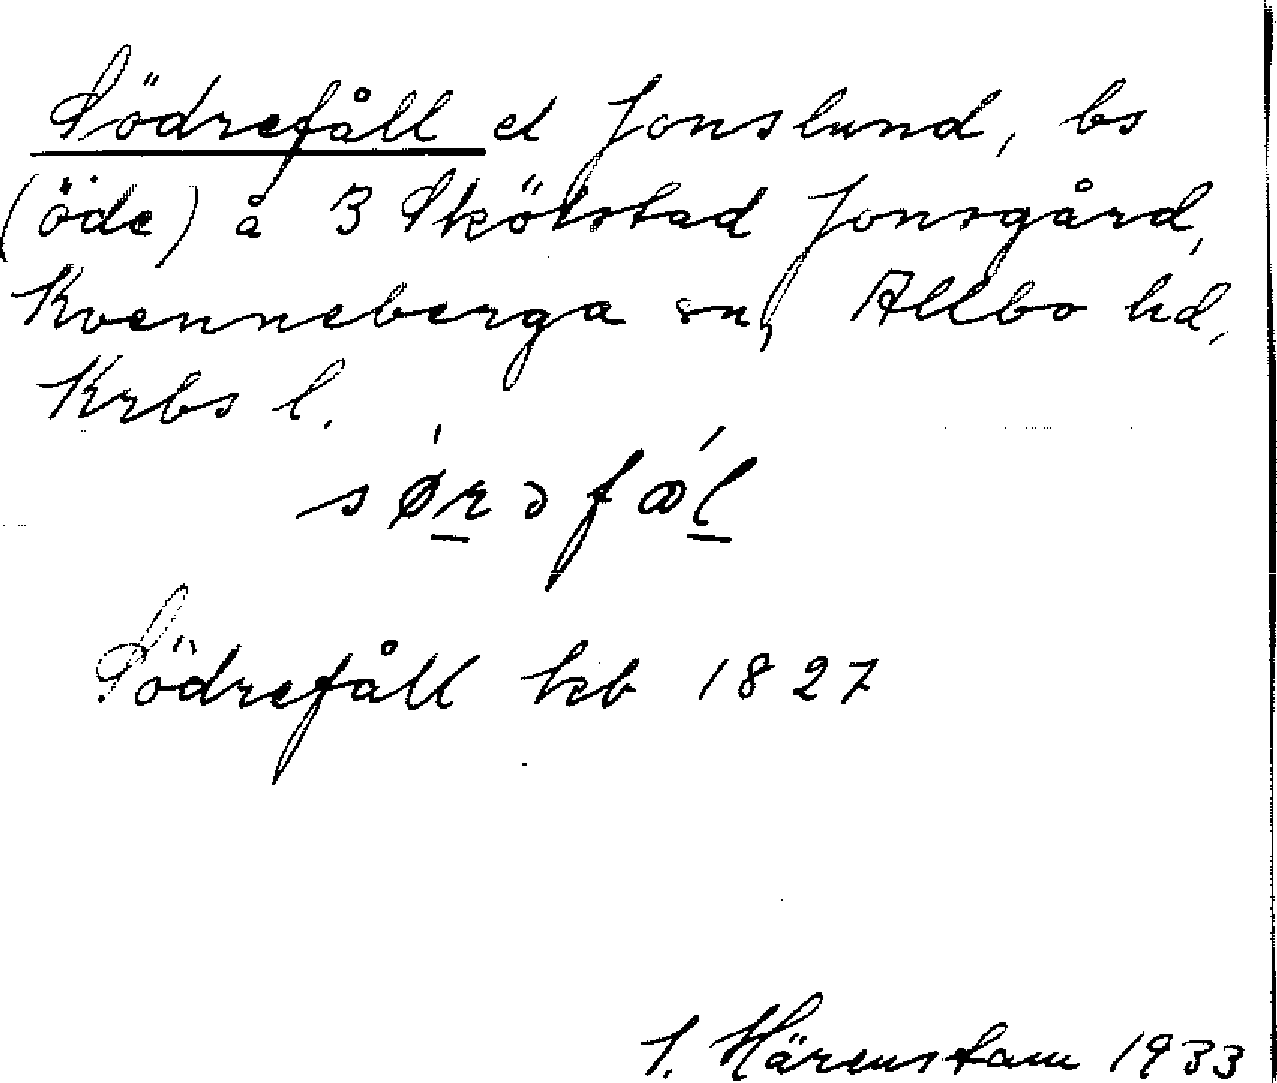 Södrefåll el Jonslund, bs
(öde) å 3 Skölstad Jonsgård,
Kvenneberga sn, Allbo hd,
Krbs l.
sørəfål
Södrefåll kb 1827
Härenstam 1933